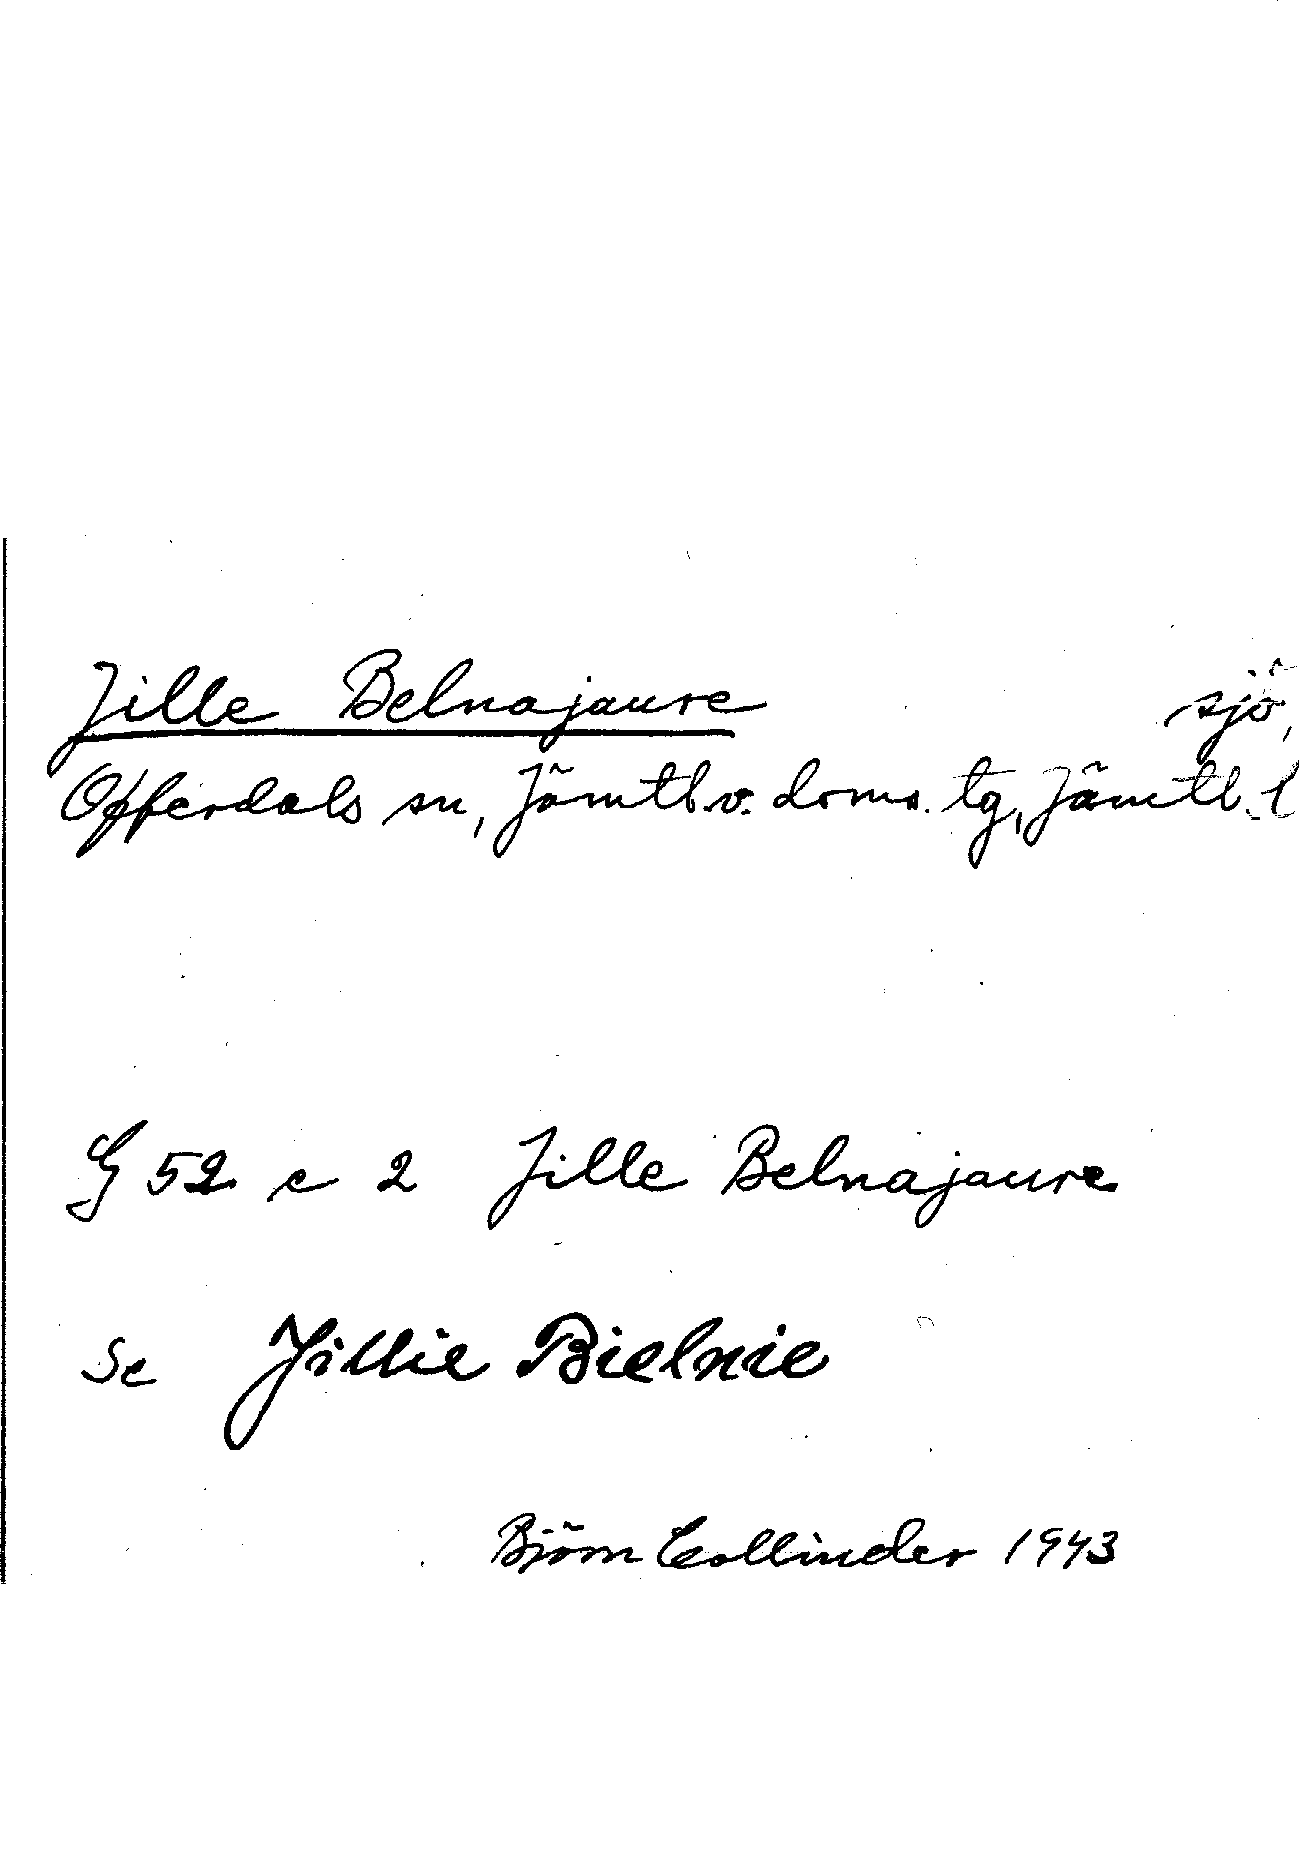 Jille Belnajaure sjö,
Offerdals sn, Jämtl. v. doms. tg, Jämtl. l
G 52 c 2 Jille Belnajaure
Se Jillie Bielnie
Björn Collinder 1943